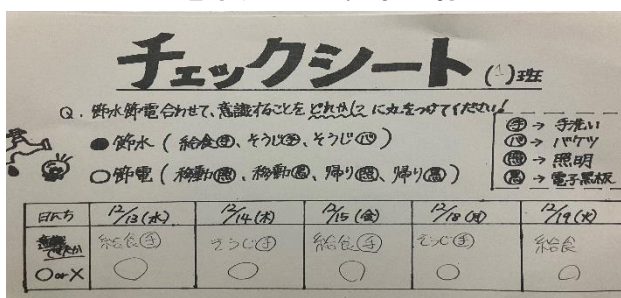 チェックシート (1)班
Q. 節水節電合わせて、意識することをどれか1つに丸をつけてください!
●節水 ( 給食㊙手、そうじ手、そうじバ )
○節電 ( 移動照、移動黒、帰り照、帰り黒 )
手 → 手洗い
バ → バケツ
照 → 照明
黒 → 電子黒板
日にち 12/13(水) 12/14(木) 12/15(金) 12/18(月) 12/19(火)
意識できたか 給食手 そうじ手 給食手 そうじ手 給食
○or× ○ ○ ○ ○ ○